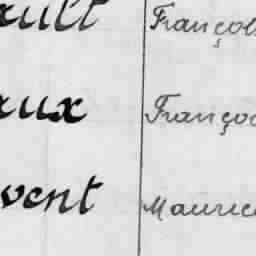 ault Françoi
aux Françoi
vent Maurice